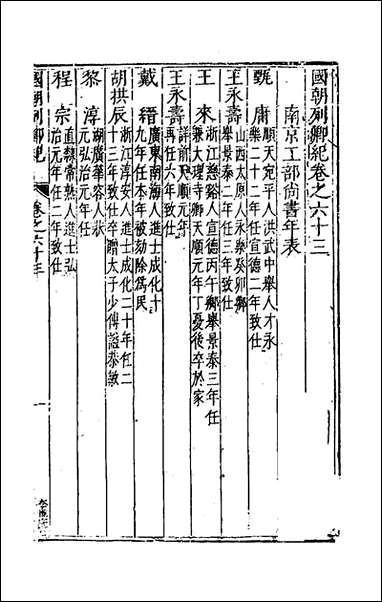 國朝列卿紀卷之六十三
南京工部尚書年表
甄庸
順天宛平人洪武中舉人才永
樂二十二年任宣德二年致仕
王永壽
山西太原人永樂癸卯鄉
舉景泰二年任三年致仕
王來
浙江慈谿人宣德丙午鄉舉景泰三年任
兼大理寺卿天順元年丁憂後卒於家
王永壽
詳前天順元年
再任六年致仕
戴縉
廣東南海人進士成化十
九年任本年被劾除爲民
胡拱辰
浙江淳安人進士成化二十年任二
十三年致仕卒贈太子少傅謚恭敏
黎淳
湖廣華容人狀
元弘治元年任
程宗
直隸常熟人進士弘
治元年任二年致仕
國朝列卿紀
卷之六十三
一